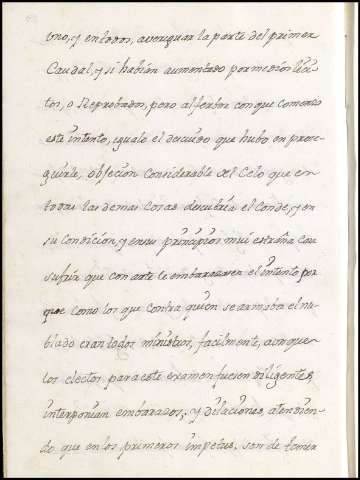 Uno, y en todos, averiguar la parte del primer
Caudal, y si habian aumentado por medios lici-
tos, o Reprobados, pero al ferbor con que comenzo
este intento, igualo el descuido que hubo en prose-
guirle, obsecion Considerable del Celo que en
todas las demas Cosas descubria el Conde, y en
su condicion, y en sus principios mui estraña cau
sufrir que con arte le embarazasen el intento por
que como los que contra quien se armaba el nu-
blado eran todos ministros, facilmente, aunque
los electos para este examen fuesen diligentes
interponian embarazos, y dilaciones, atendien-
do que en los primeros impetus, son de temer